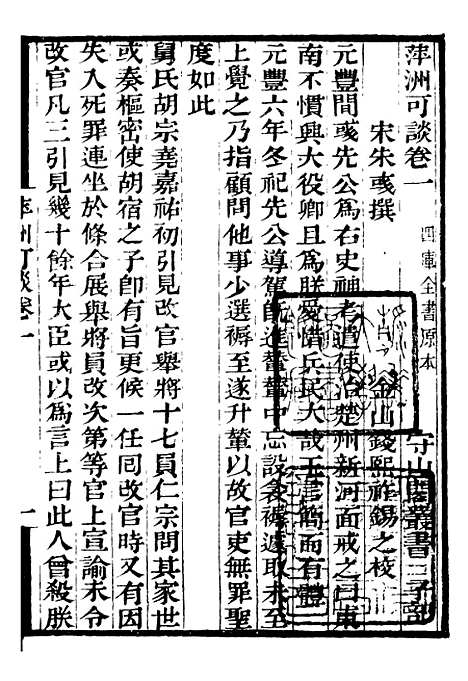 萍洲可談卷一
四庫全書原本
守山閣叢書 子部
宋朱彧撰
金山錢熙祚錫之校
元豐間彧先公爲右史神考遣使治楚州新河面戒之曰東
南不慣興大役卿且爲朕愛惜兵民大哉王言簡而有體
元豐六年冬祀先公導駕旣進輦輦中忘設衾褥遽取未至
上覺之乃指顧問他事少選褥至遂升輦以故官吏無罪聖
度如此
舅氏胡宗堯嘉祐初引見改官舉將十七員仁宗問其家世
或奏樞密使胡宿之子卽有旨更候一任囘改官時又有因
失入死罪連坐於條合展舉將員改次第等官上宣諭未令
改官凡三引見幾十餘年大臣或以爲言上曰此人曾殺朕
萍洲可談卷一
一